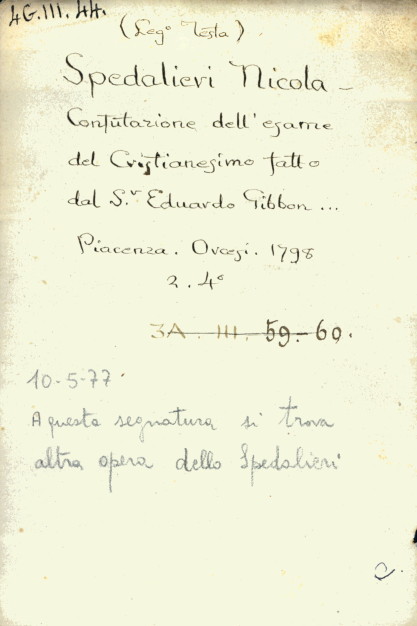 4G.III.44.
(Leg° Testa).
Spedalieri Nicola -
Confutazione dell'esame
del Cristianesimo fatto
dal S.r Eduardo Gibbon ...
Piacenza. Orcesi. 1798
2. 4°
3A. III. 59-60.
10-5-77.
A questa segnatura si trova
altra opera dello Spedalieri